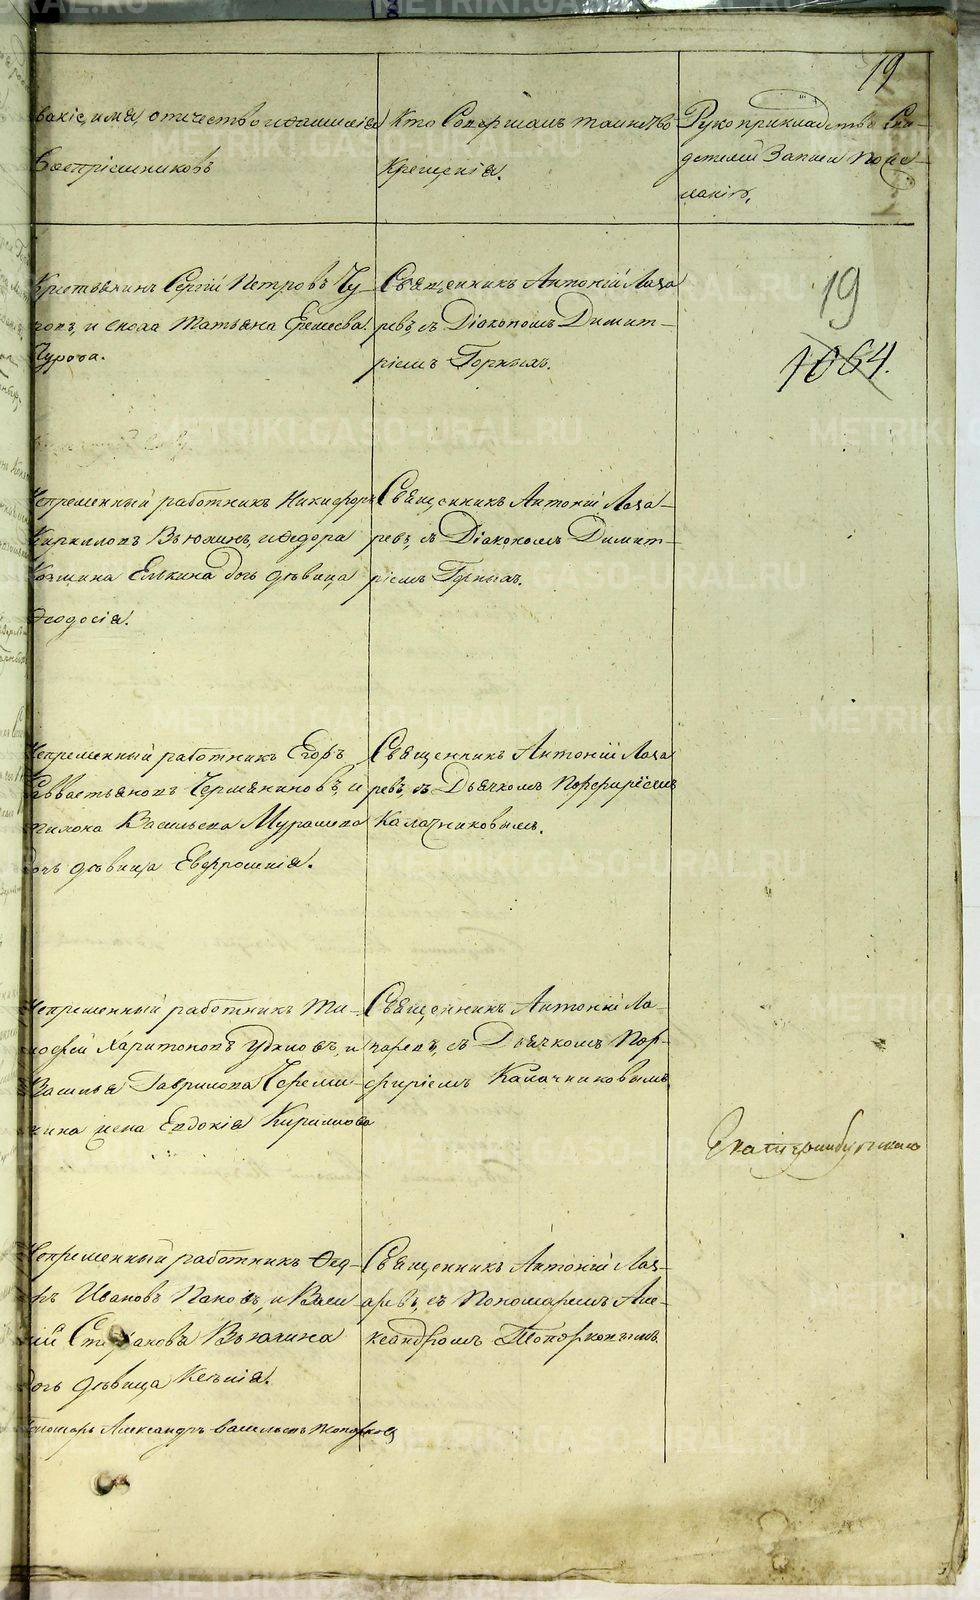 19
Званіе, имя, отчество и фамилія
Воспріемниковъ
Кто Совершалъ таинство
Крещенія.
Рукоприкладство Сви-
детелей Записи по же-
ланію.
Крестьянинъ Сергій Петровъ Чу-
ровъ, и сноха Татьяна Еремеева
Чурова.
Священникъ Антоній Лаза
ревъ, съ Діакономъ Димит-
ріемъ Горныхъ.
19
1064.
Непременный работникъ Никифоръ
Кирилловъ Вьюхинъ, и Федора
Козмина Елькина дочь девица
Феодосія.
Священникъ Антоній Лаза-
ревъ, съ Діакономъ Димит-
ріемъ Горныхъ.
Непременный работникъ Егоръ
Савватьяновъ Чермяниновъ, и
Васильева
дочь девица Евфросинія.
Священникъ Антоній Лаза
ревъ, съ Дьячкомъ Порфиріемъ
Калачниковымъ.
Непременный работникъ Ти-
мофей Харитоновъ Удиловъ, и
Василья Гаврилова
жена Евдокія Кирилова
Священникъ Антоній Ла-
заревъ, съ Дьячкомъ Пор-
фиріемъ Калачниковымъ
Екатеринбургскаго
Непременный работникъ Фед-
оръ Ивановъ Пановъ, и Васи
лій Стефановъ Вьюхина
дочь девица Ксенія.
Священникъ Антоній Лаз-
аревъ, съ Пономаремъ Але-
ксандромъ Топорковымъ
Пономарь Александръ Васильевъ Топорковъ
METRIKI.GASO-URAL.RU